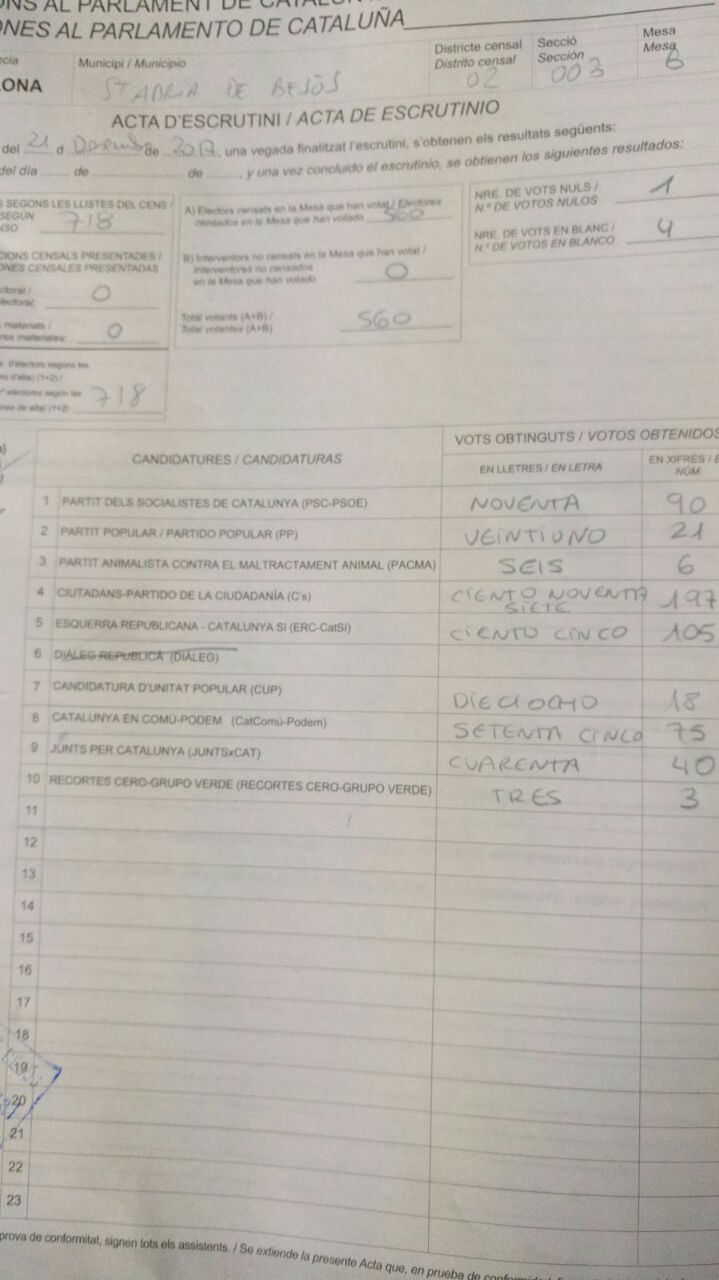 ONS AL PARLAMENT DE CATALUN
ONES AL PARLAMENTO DE CATALUÑA
ncia
Municipi / Municipio
Districte censal
Distrito censal
Secció
Sección
Mesa
Mesa
LONA
ST ADRIA DE BESÒS
02
003
B
ACTA D'ESCRUTINI / ACTA DE ESCRUTINIO
del 21 d Desembre de 2017, una vegada finalitzat l'escrutini, s'obtenen els resultats següents:
del día ........ de .................... de ........, y una vez concluido el escrutinio, se obtienen los siguientes resultados:
S SEGONS LES LLISTES DEL CENS /
SEGÚN
NSO 718
CIONS CENSALS PRESENTADES /
ONES CENSALES PRESENTADAS
ctoral /
lectoral: 0
materials /
res materiales: 0
s. d'electors segons les
ns d'alta) (1+2) /
nº electores según las
ones de alta) (1+2) 718
A) Electors censats en la Mesa que han votat / Electores
censados en la Mesa que han votado 560
B) Interventors no censats en la Mesa que han votat /
Interventores no censados
en la Mesa que han votado 0
Total votants (A+B) /
Total votantes (A+B) 560
NRE. DE VOTS NULS /
N.º DE VOTOS NULOS 1
NRE. DE VOTS EN BLANC /
N.º DE VOTOS EN BLANCO 4
CANDIDATURES / CANDIDATURAS
VOTS OBTINGUTS / VOTOS OBTENIDOS
EN LLETRES / EN LETRA
EN XIFRES / E
NÚM.
1 PARTIT DELS SOCIALISTES DE CATALUNYA (PSC-PSOE) NOVENTA 90
2 PARTIT POPULAR / PARTIDO POPULAR (PP) VEINTIUNO 21
3 PARTIT ANIMALISTA CONTRA EL MALTRACTAMENT ANIMAL (PACMA) SEIS 6
4 CIUTADANS-PARTIDO DE LA CIUDADANÍA (C's) CIENTO NOVENTA SIETE 197
5 ESQUERRA REPUBLICANA - CATALUNYA SÍ (ERC-CatSí) CIENTO CINCO 105
6 DIÀLEG REPÚBLICA (DIÀLEG)
7 CANDIDATURA D'UNITAT POPULAR (CUP) DIECIOCHO 18
8 CATALUNYA EN COMÚ-PODEM (CatComú-Podem) SETENTA CINCO 75
9 JUNTS PER CATALUNYA (JUNTSxCAT) CUARENTA 40
10 RECORTES CERO-GRUPO VERDE (RECORTES CERO-GRUPO VERDE) TRES 3
11
12
13
14
15
16
17
18
19
20
21
22
23
prova de conformitat, signen tots els assistents. / Se extiende la presente Acta que, en prueba de conformidad, f